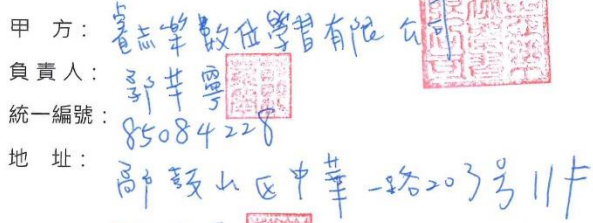 甲 方：睿志學數位學習有限公司
負責人：郭芊寧
統一編號：85084228
地 址：高市鼓山区中華一路203号11F